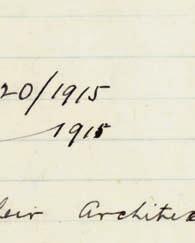 20/1915
1915
heir Architec